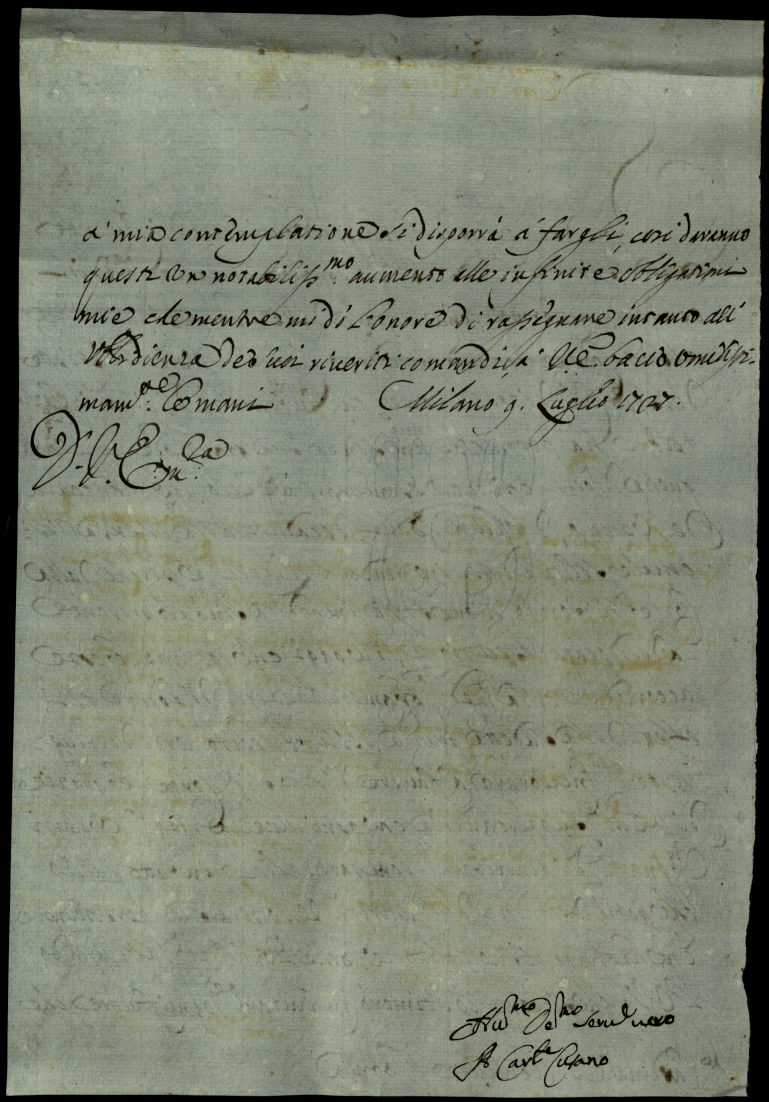 a' mia contemplatione si disporrà à fargli, così daranno
questi un notabiliss.mo aumento alle infinite obligationi
mie che mentre mi dò l'onore di rassegnare intanto all'
Ubidienza de suoi riveriti comandi, à V.E. bacio umiliss:
mam.te le mani Milano 9. Luglio 1727.
D. V. Em.za
Hu.mo De.mo Seru.